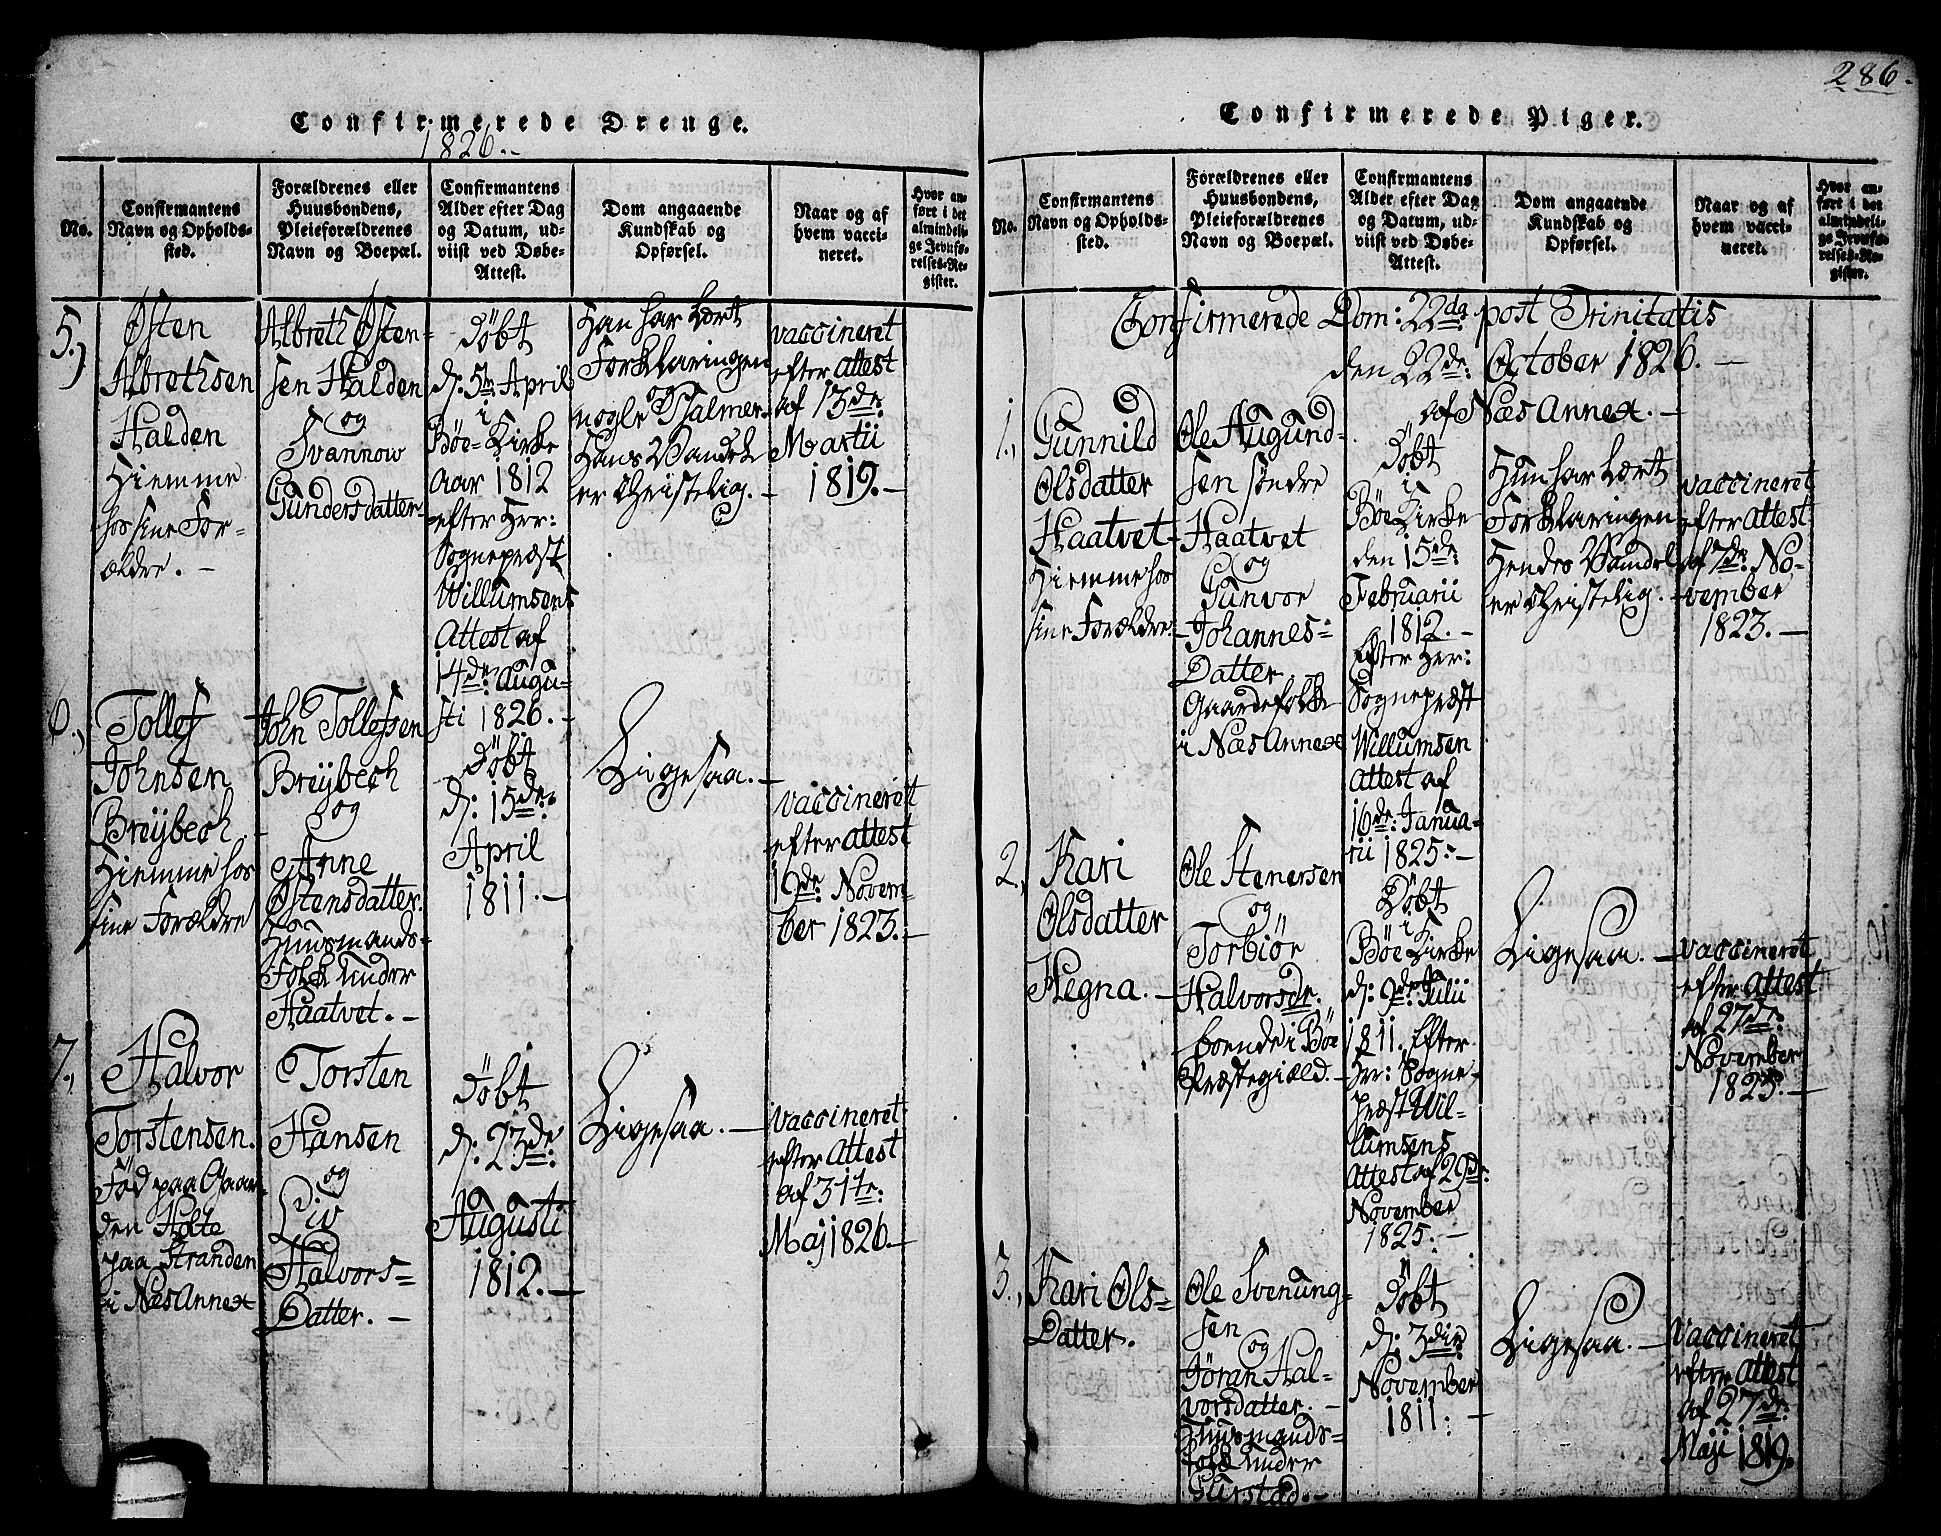 286.
Confirmerede Drenge.
1826.-
No.
Confirmantens
Navn og Opholds-
sted.
Forældrenes eller
Huusbondens,
Pleieforældrenes
Navn og Boepæl.
Confirmantens
Alder efter Dag
og Datum, ud-
viist ved Døbe-
Attest.
Dom angaaende
Kundskab og
Opførsel.
Naar og af
hvem vacci-
neret.
Hvor an-
ført i det
almindeli-
ge Jevnfø-
relses-Re-
gister.
5.)
Østen
Albrethsen
Halden
Hiemme
hos sine For-
ældre. -
Albreth Østen-
sen Halden
og
Svannow
Gundersdatter
Døbt
d: 5te April
i
Bøe-Kirke
aar 1812
efter Her:
Sognepræst
Willumsens
Attest af
14de: Augu-
sti 1826. -
Han har Lært
Forklaringen
og
nogle Psalmer.
Hans Vandel
er Christelig. -
vaccineret
efter attest
af 13de:
Martii
1819. -
6.,
Tollef
Johnsen
Breÿbech.
Hiemme hos
sine Forældre
John Tollefsen
Breÿbech
og
Anne
Østensdatter.
Huusmands-
Folk under
Haatvet. -
Døbt
d: 15de:
April
1811. -
Ligesaa. -
vaccineret
efter attest
19de: Novem-
ber 1823. -
7.,
Halvor
Torstensen.
Fød paa Gaar-
den Holte
paa Stranden
i Næs Annex
Torsten
Hansen
og
Liv
Halvors-
Datter. -
Døbt
d: 23de:
Augusti
1812. -
Ligesaa. -
vaccineret
efter Attest
af 31te:
Maj 1826. -
Confirmerede Piger.
No.
Confirmantens
Navn og Opholds-
sted.
Forældrenes eller
Huusbondens,
Pleieforældrenes
Navn og Boepæl.
Confirmantens
Alder efter Dag
og Datum, ud-
viist ved Døbe-
Attest.
Dom angaaende
Kundskab og
Opførsel.
Naar og af
hvem vacci-
neret.
Hvor an-
ført i det
almindeli-
ge Jevnfø-
relses-Re-
gister.
Confirmerede Dom: 22da post Trinitatis
den 22de: October 1826. -
af Næs Annex. -
1.,
Gunnild
Olsdatter
Haatvet -
Hiemme hos
sine Forældre.
Ole Augund-
sen søndre
Haatvet
og
Gunvor
Johannes-
Datter
Gaardefolk
i Næs Annex
Døbt
i
Bøe Kirke
den 15de:
Februarii
1812. -
Efter Her:
Sognepræst
Willumsen
Attest af
16de: Janua-
rii 1825. -
Hun har Lært
Forklaringen
Hendes Vandel
er Christelig. -
vaccineret
efter Attest
af 7de: No-
vember
1823. -
2.,
Kari
Olsdatter
Hegna. -
Ole Stenersen
og
Torbiør
Halvorsdr.
boende i Bøe
Præstegiæld. -
Døbt
i
Bøe Kirke
d: 9de: Julii
1811. Efter
Hr: Sogne-
præst Wil-
lumsens
Attest af 29de:
November
1825. -
Ligesaa. -
vaccineret
efter Attest
af 27de:
November
1823. -
3.,
Kari Ols-
Datter.
Ole Svenung-
sen
og
Jøran Hal-
vorsdatter. -
Huusmands-
folk under
Gurstad. -
Døbt
d: 3die
November
1811. -
Ligesaa. -
vaccineret
efter Attest
af 27de:
Maji 1819.